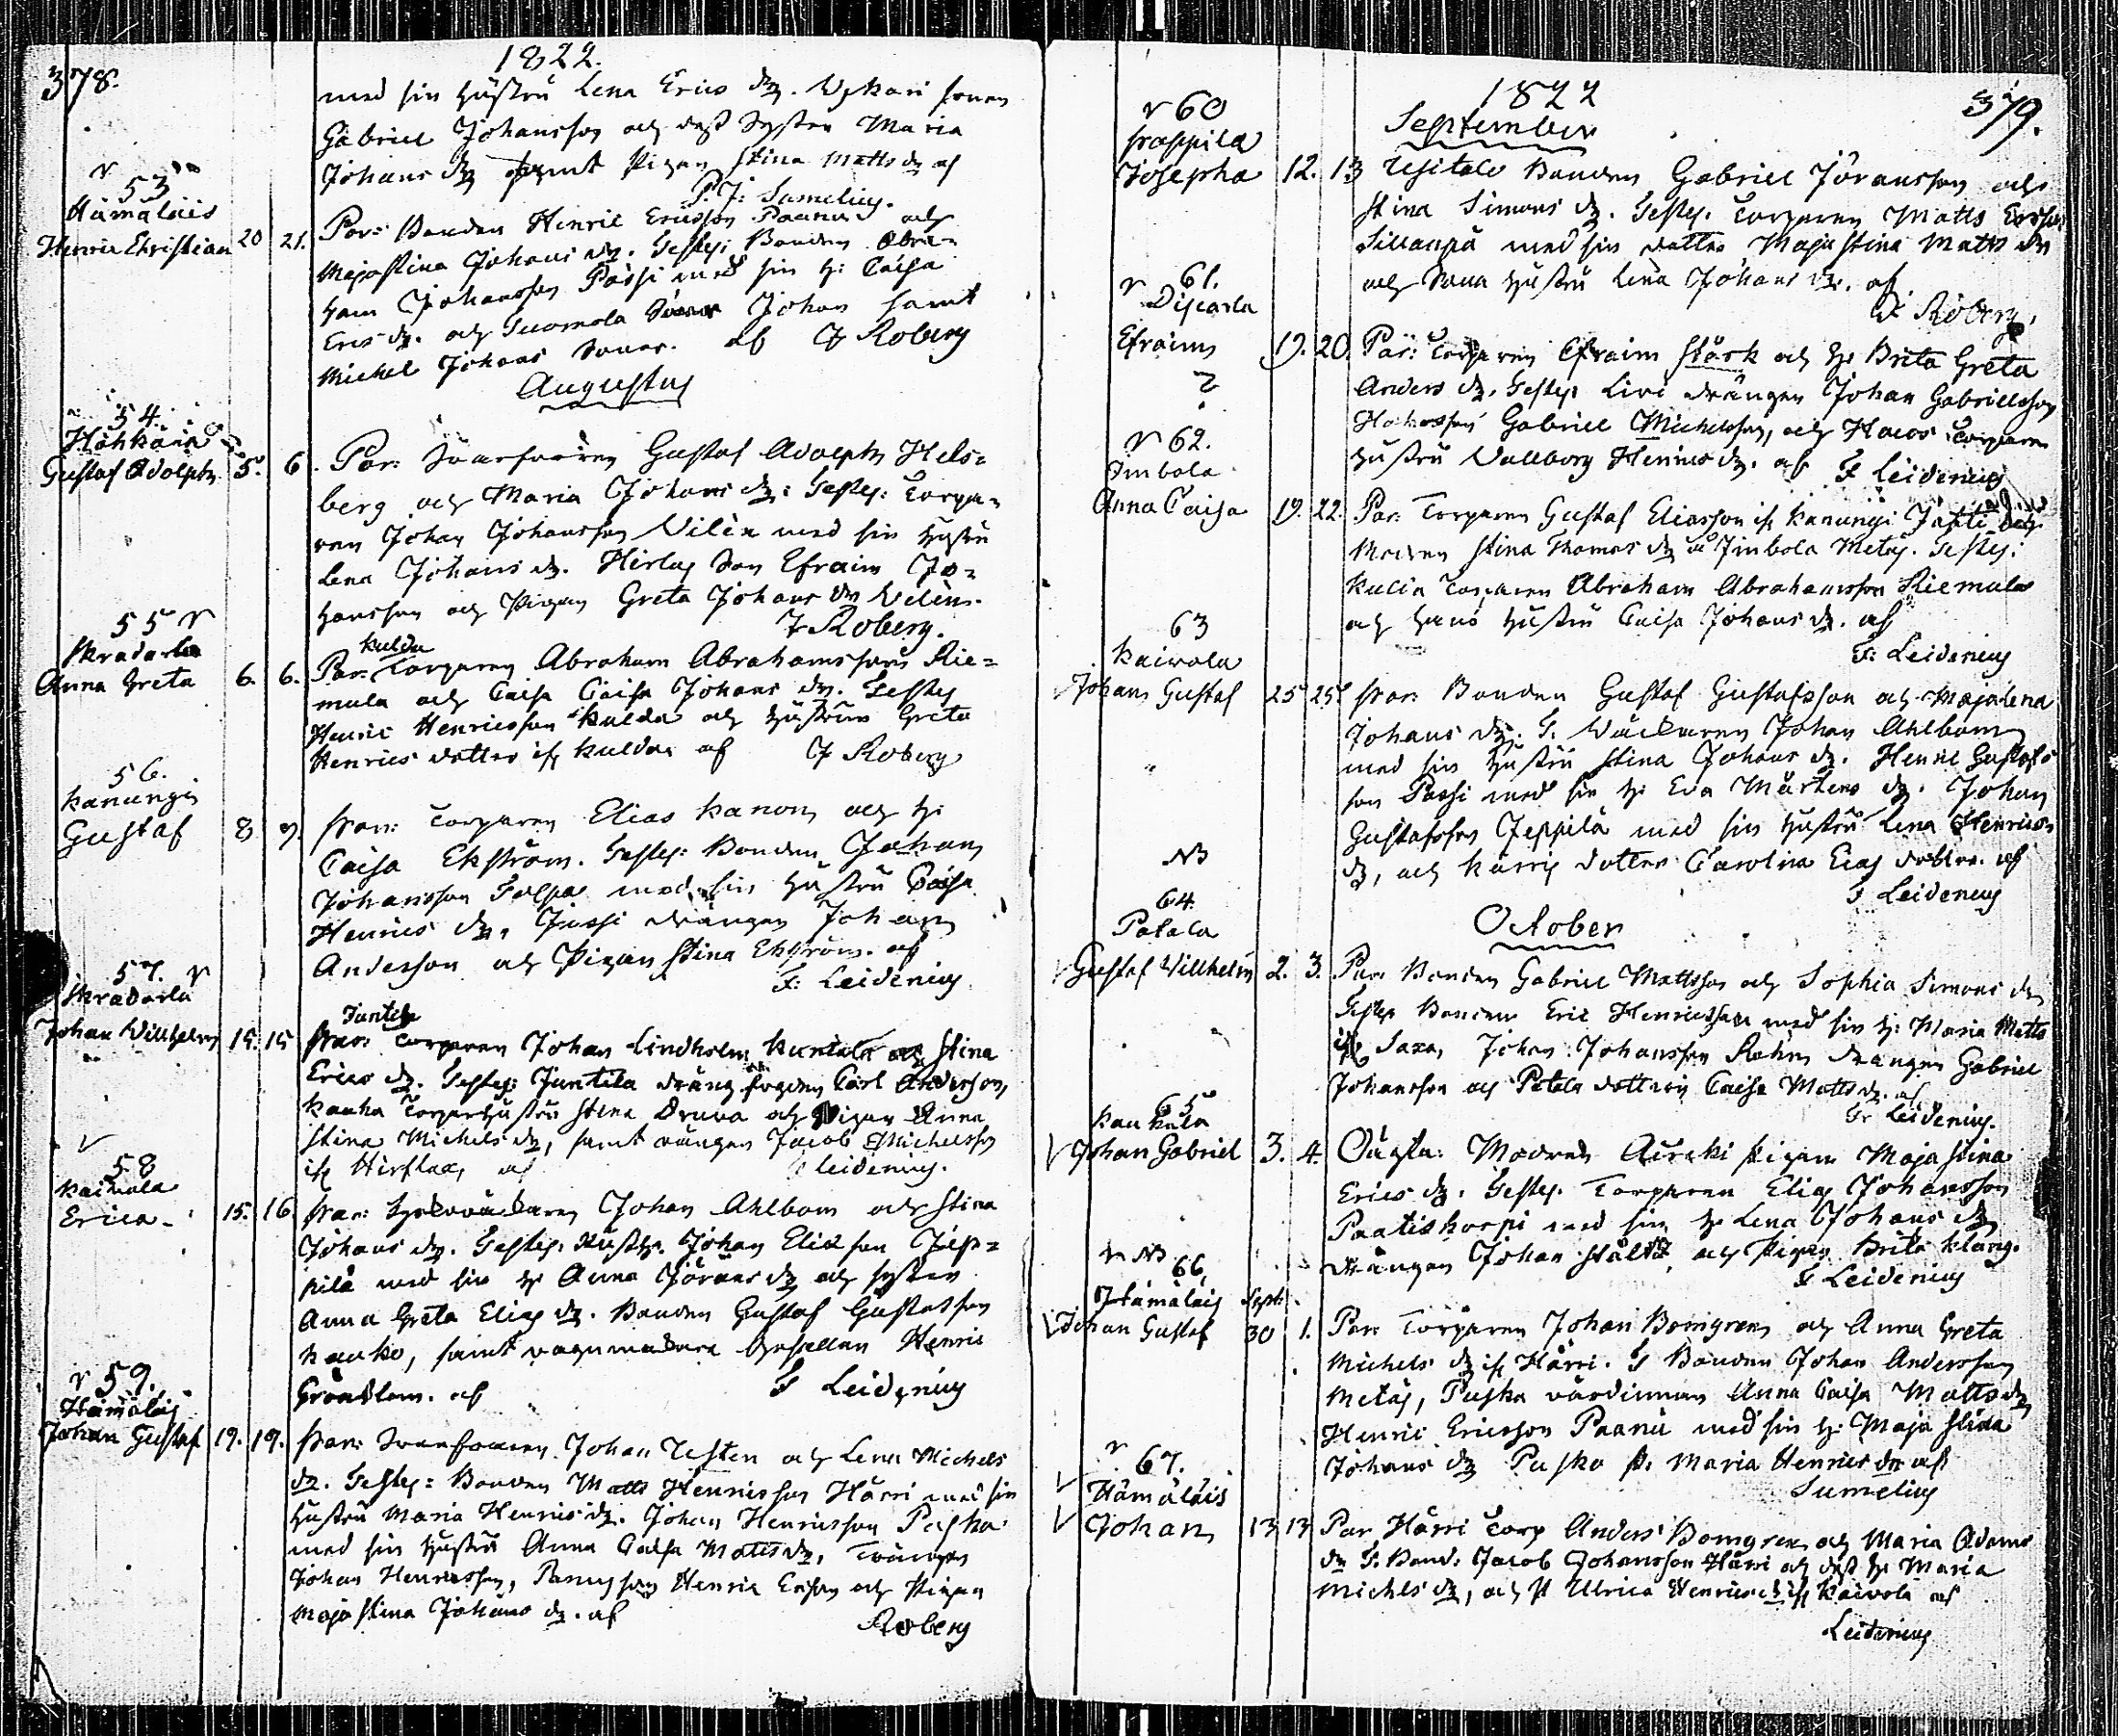 378.
1822.
med sin hustru Lena Erics dr. Wekari sonen
Gabriel Johansson och dess Syster Maria
Johans dr samt Pigan Stina Matts dr af
P. J: Sumelius.
53
Hämäläis
Henric Christian 20 21. Par: Bonden Henric Ericsson Paanu och
Majastina Johans dr. Testes: Bonden Abra-
ham Johansson Passi med sin h: Caisa
Erics dr. och Suomola Johan samt
Michel Johans Soner. af J Roberg
Augustus
54.
Höhkärä
Gustaf Adolph 5. 6. Par: Gustaf Adolph Hels-
berg och Maria Johans dr: Testes: Torpa-
ren Johan Johansson Vilèn med sin hustru
Lena Johans dr. Son Efraim Jo-
hansson och Pigan Greta Johans dr Vilèns.
J Roberg.
55
Skradarla
Anna Greta 6. 6. Par: Kulda Torparen Abraham Abrahamsson Rie-
mula och Caisa Caisa Johans dr. Testes
Henric Henricsson Kulda och hustrun Greta
Henrics dotter ifr Kuldas af J Roberg
56.
Kanungi
Gustaf 8 9. Par: Torparen Elias Kanon och h:
Caisa Ekström. Testes: Bonden Johan
Johansson med sin hustru Caisa
Henrics dr, Jussi drängen Johan
Andersson och Pigan Stina Ekström. af
F: Leidenius
57.
Skradarla
Johan Willhelm 15. 15 Par: Juntila Torparen Johan Lindholm och Stina
Erics dr. Testes: Juntila drängfogden Carl Andersson,
Kauka Torparhustru Stina Druva och Pigan Anna
Stina Michels dr, samt drängen Jacob Michelsson
ifr af Leidenius.
58
Kaivola
Erica 15. 16 Par: Johan Ahlbom och Stina
Johans dr. Testes: Johan Eliæ son Jep-
pilä med sin h: Anna Jörans dr och syster
Anna Greta Elias dr. Bonden Gustaf Gustafsson
Kauko, samt Gesellen Henric
Grönblom. af F Leidenius
59.
Hämäläis
Johan Gustaf 19. 19. Par: Johan Usten och Lena Michels
dr. Testes: Bonden Matts Henricsson Härri med sin
hustru Maria Henrics dr. Johan Henricsson Puska
med sin hustru Anna Caisa Matts dr, drängen
Johan Henricsson, Henric Ericson och Pigan
Maja Stina Johans dr. af
Roberg
379.
1822
September
60
Pappila
Josepha 12. 13 Usitalo Bonden Gabriel Jöransson och
Stina Simons dr. Testes. Torparen Matts Ersson
Sillanpä med sin dotter Maja Stina Matts dr
och Sona hustru Lena Johans dr. af
J. Roberg.
61.
Piscarla
Efraim 19. 20. Par: Torparen Efraim Stark och h: Brita Greta
Anders dr. Testes: Livi drängen Johan Gabrielsson
Gabriel Michelsson, och Torparen
hustru Wallborg Henrics dr. af F Leidenius
62.
Imbola
Anna Caisa 19. 22. Par. Torparen Gustaf Eliasson ifr Kanungi och
Modren Stina Thomas dr i Jmbola Metäs. Testes:
Kulda Torparen Abraham Abrahamsson Riemula
och hans hustru Caisa Johans dr. af
F: Leidenius
63
Kaivola
Johan Gustaf 25 25 Par: Bonden Gustaf Gustafsson och Majalena
Johans dr. T. Johan Ahlbom
med sin hustru Stina Johans dr. Henric Gustafs
son Passi med sin h: Eva Mårtens dr. Johan
Gustafsson Jeppilä med sin hustru Lena Henrics
dr, och dotter Carolina Elias dotter. af
F Leidenius
October
NB
64.
Patala
Gustaf Willhelm 2. 3. Par: Bonden Gabriel Mattsson och Sophia Simons dr
Testes Bonden Eric Henricsson med sin h: Maria Matts
ifr Saxa, Johan Johansson drängen Gabriel
Johansson och Patala dottren Caisa Matts dr. af
F: Leidenius.
65
Kaukola
Johan Gabriel 3. 4. Oägta: Modren pigan Maja Stina
Erics dr. Testes. Torparen Elias Johansson
Paatiskorpi med sin h: Lena Johans dr
drängen Johan och Pigan Brita Klang.
F Leidenius
NB 66
Hämäläis Sept:
Johan Gustaf 30 1. Par: Torparen Johan Bomgren och Anna Greta
Michels dr ifr Härri. T Bonden Johan Andersson
Metäs, Puska värdinnan Anna Caisa Matts dr,
Henric Ericsson Paanu med sin h: Maja Stina
Johans dr Puska p. Maria Henrics dr af
Sumelius
67.
Hämäläis
Johan 13 13 Par Härri Torp Anders Bomgren och Maria Adams
dr T. Bond: Jacob Johansson Härri och dess h: Maria
Michels dr, och P Ulrica Henrics dr ifr Kaivola af
Leidenius